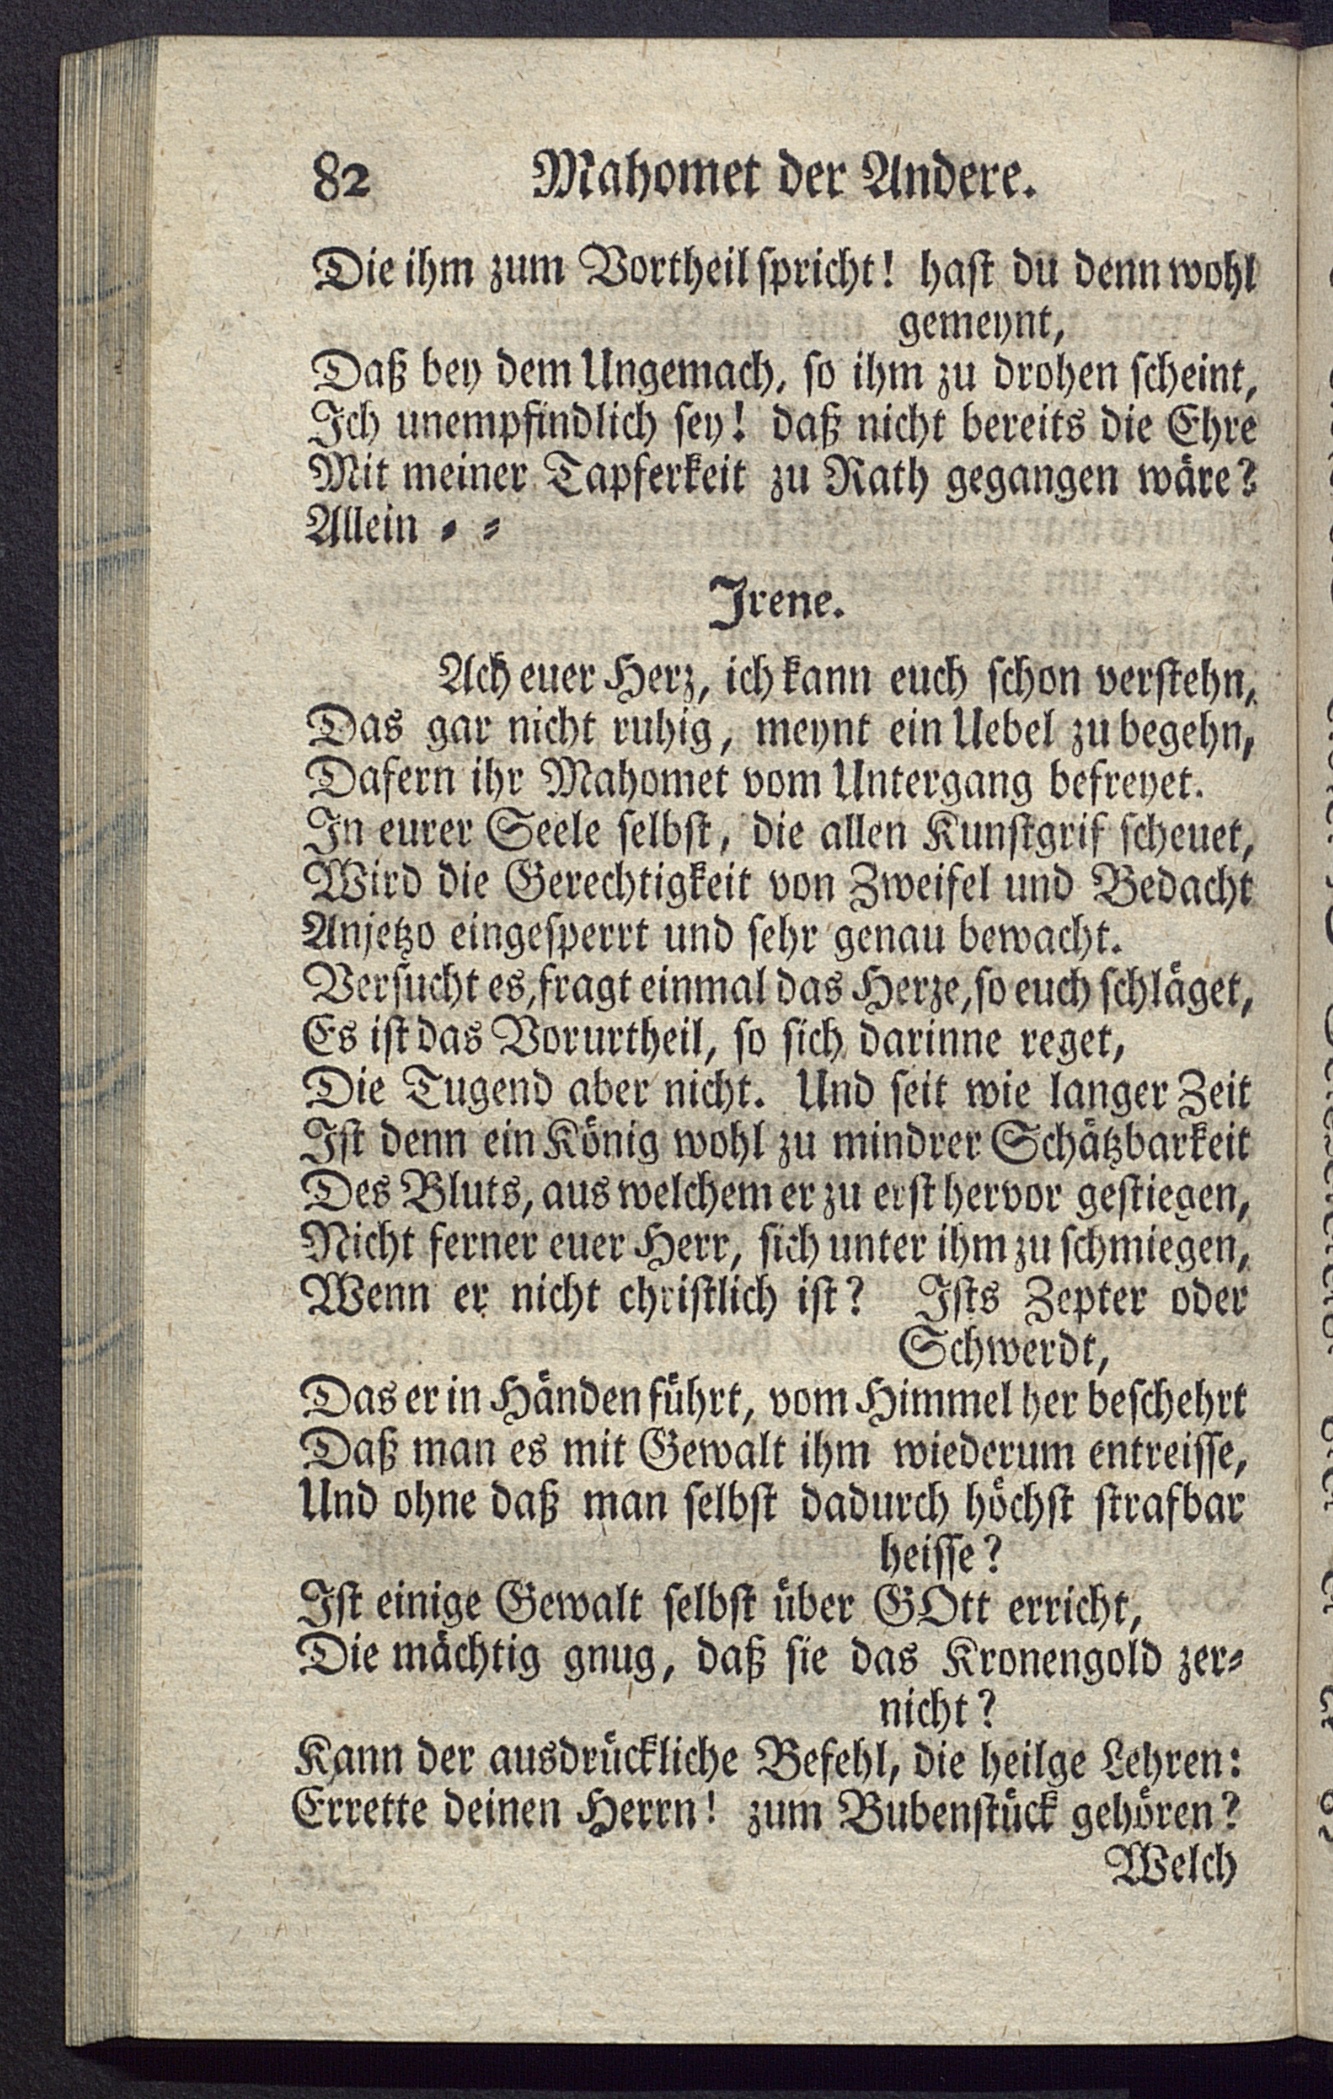 82 Mahomet der Andere.
Die ihm zum Vortheil spricht! hast du denn wohl
gemeynt,
Daß bey dem Ungemach, so ihm zu drohen scheint,
Ich unempfindlich sey! daß nicht bereits die Ehre
Mit meiner Tapferkeit zu Rath gegangen wäre?
Allein = =
Irene.
Ach euer Herz, ich kann euch schon verstehn,
Das gar nicht ruhig, meynt ein Uebel zu begehn,
Dafern ihr Mahomet vom Untergang befreyet.
In eurer Seele selbst, die allen Kunstgrif scheuet,
Wird die Gerechtigkeit von Zweifel und Bedacht
Anjetzo eingesperrt und sehr genau bewacht.
Versucht es, fragt einmal das Herze, so euch schläget,
Es ist das Vorurtheil, so sich darinne reget,
Die Tugend aber nicht. Und seit wie langer Zeit
Ist denn ein König wohl zu mindrer Schätzbarkeit
Des Bluts, aus welchem er zu erst hervor gestiegen,
Nicht ferner euer Herr, sich unter ihm zu schmiegen,
Wenn er nicht christlich ist? Ists Zepter oder
Schwerdt,
Das er in Händen führt, vom Himmel her beschehrt
Daß man es mit Gewalt ihm wiederum entreisse,
Und ohne daß man selbst dadurch höchst strafbar
heisse?
Ist einige Gewalt selbst über GOtt erricht,
Die mächtig gnug, daß sie das Kronengold zer=
nicht?
Kann der ausdrückliche Befehl, die heilge Lehren:
Errette deinen Herrn! zum Bubenstück gehören?
Welch